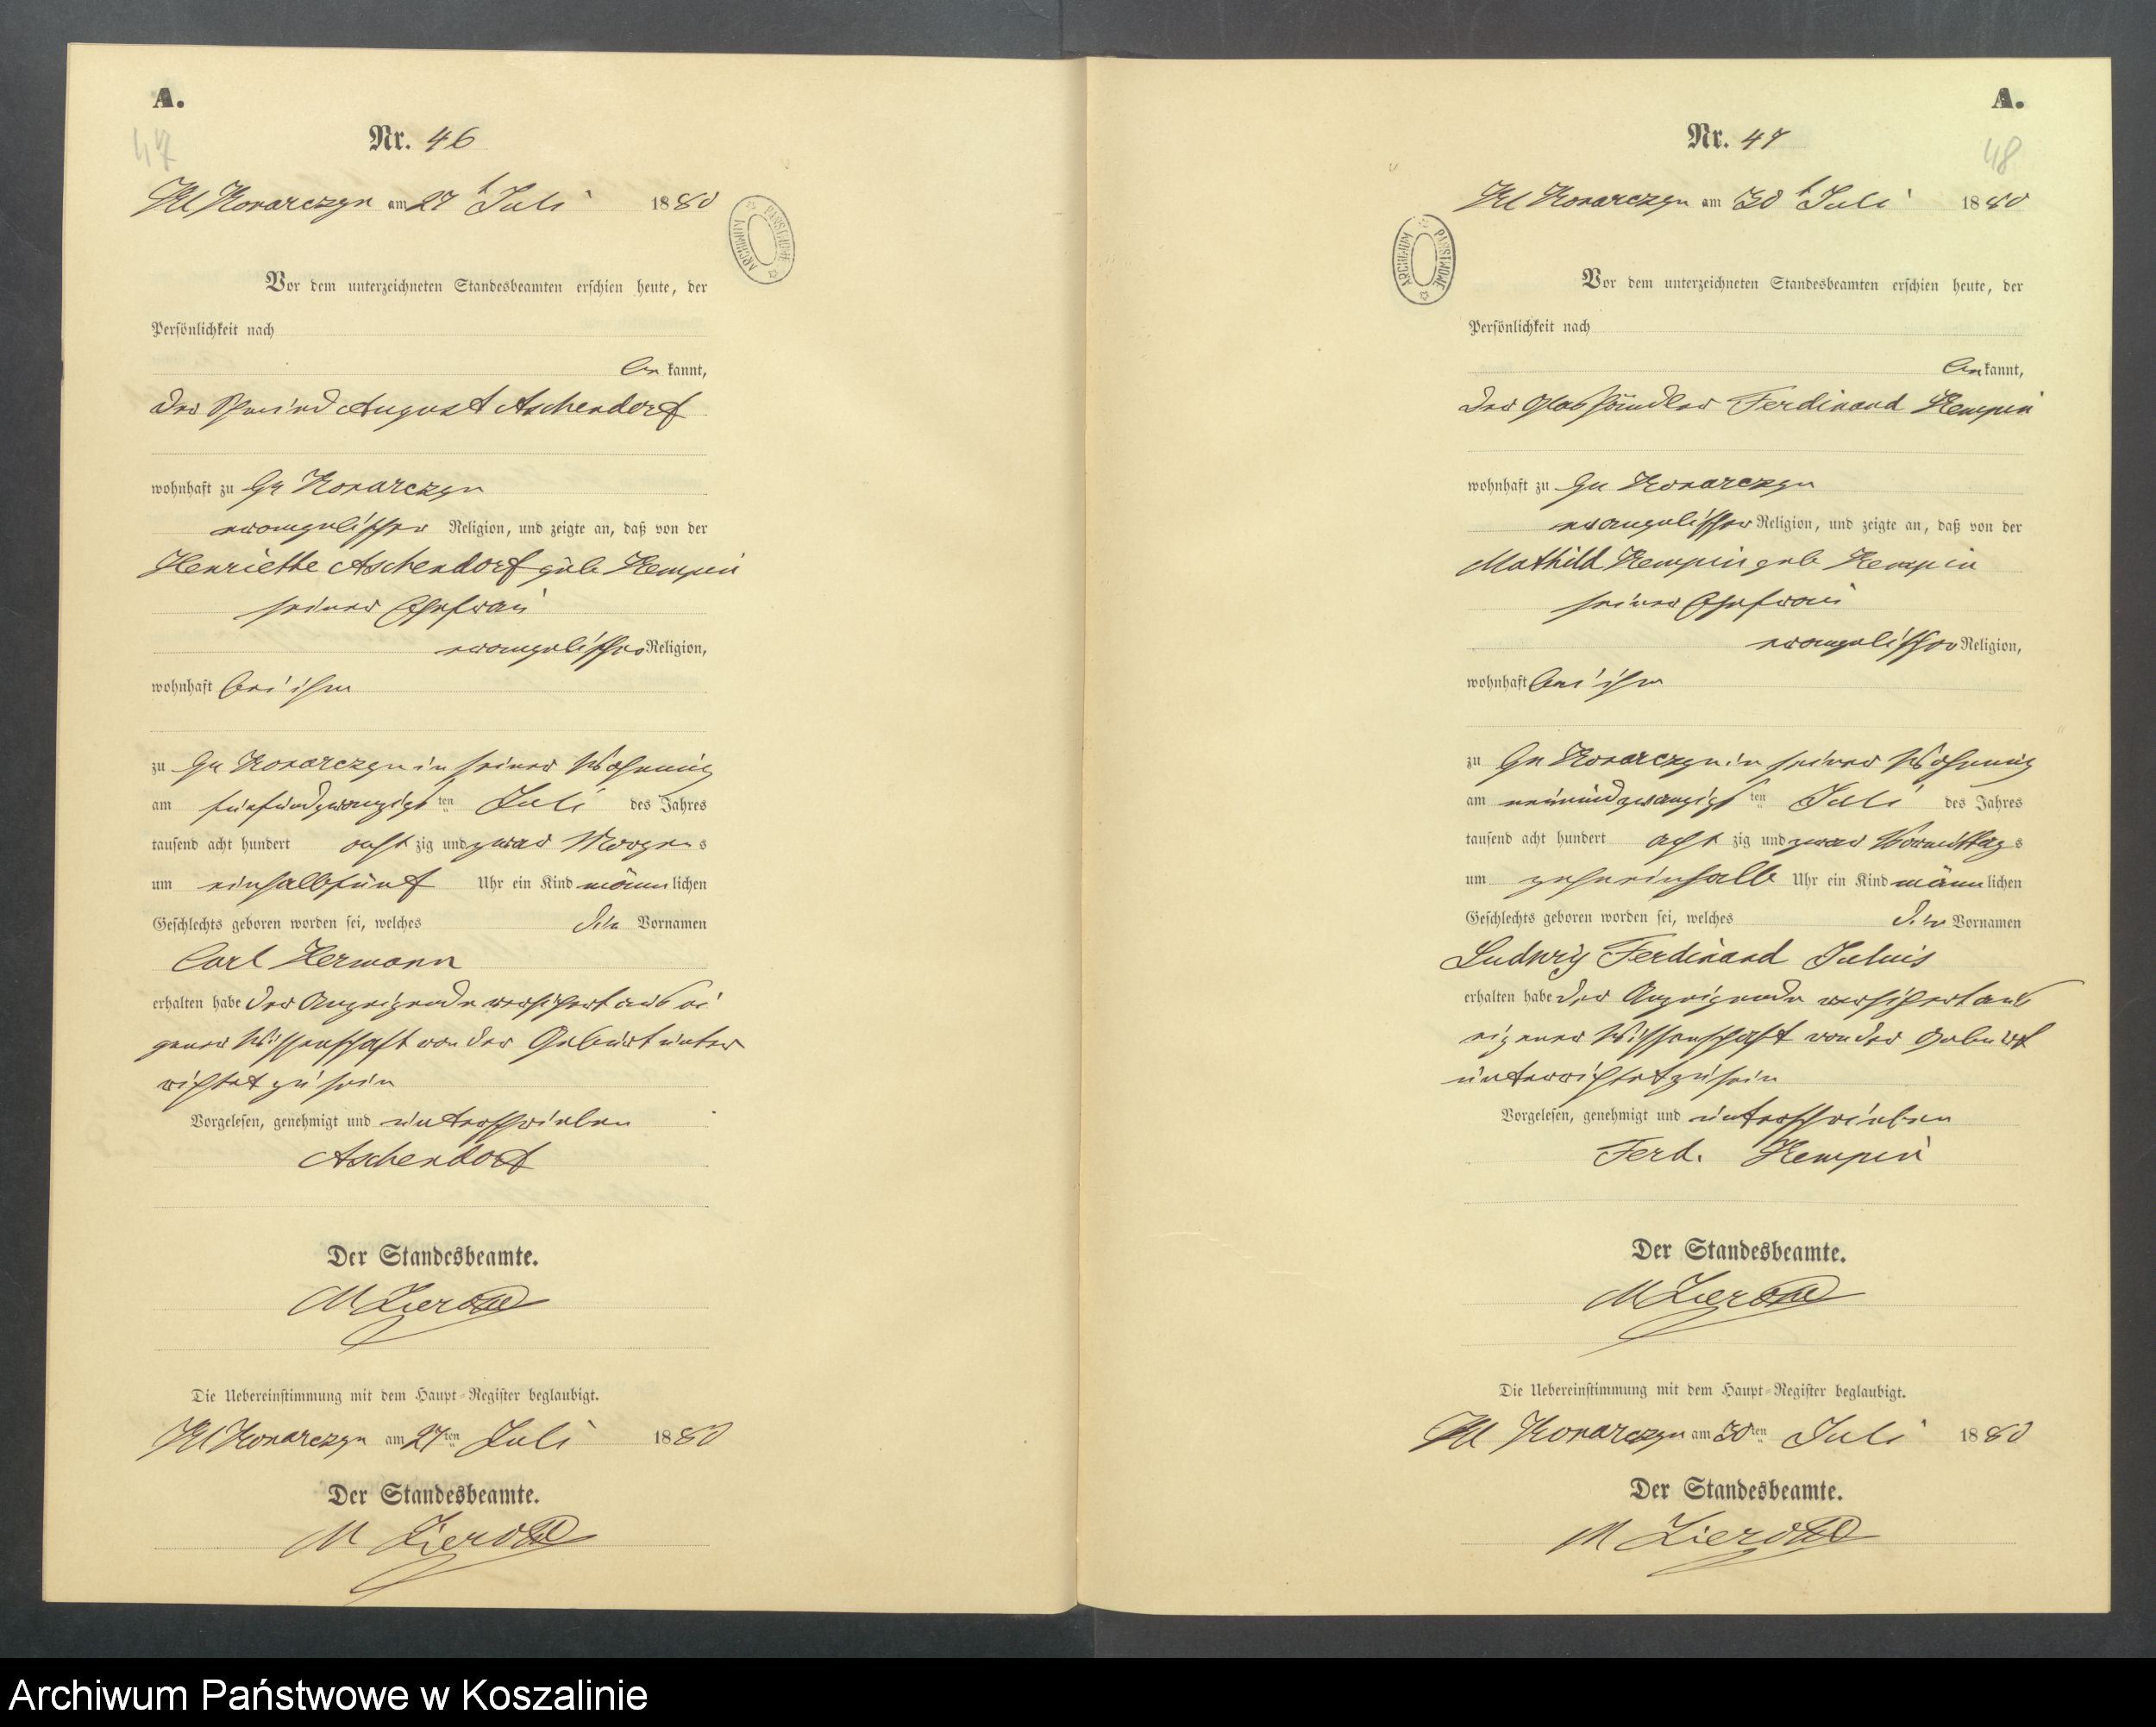 A.
47
Nr. 46
Kl Konarczyn am 27 t Juli 1880
ARCHIWUM PAŃSTWOWE
Vor dem unterzeichneten Standesbeamten erschien heute, der
Persönlichkeit nach
be kannt,
der Schmied August Aschendorf
wohnhaft zu Gr Konarczyn
evangelischer Religion, und zeigte an, daß von der
Henriette Aschendorf geb Kempin
seiner Ehefrau
evangelischer Religion,
wohnhaft bei ihm
zu Gr Konarczyn in seiner Wohnung
am fünfundzwanzigs ten Juli des Jahres
tausend acht hundert acht zig und zwar Morgen s
um einhalbfünf Uhr ein Kind männ lichen
Geschlechts geboren worden sei, welches die Vornamen
Carl Hermann
erhalten habe der Anzeigende versichert aus ei
gener Wissenschaft von der Geburt unter
richtet zu sein
Vorgelesen, genehmigt und unterschrieben
Aschendorf
Der Standesbeamte.
Die Uebereinstimmung mit dem Haupt-Register beglaubigt.
Kl Konarczyn am 27 ten Juli 1880
Der Standesbeamte.
A.
48
Nr. 47
Kl Konarczyn am 30 t Juli 1880
ARCHIWUM PAŃSTWOWE
Vor dem unterzeichneten Standesbeamten erschien heute, der
Persönlichkeit nach
be kannt,
der Glashändler Ferdinand Kempin
wohnhaft zu Gr Konarczyn
evangelischer Religion, und zeigte an, daß von der
Mathild Kempin geb Kempin
seiner Ehefrau
evangelischer Religion,
wohnhaft bei ihm
zu Gr Konarczyn in seiner Wohnung
am neunundzwanzigs ten Juli des Jahres
tausend acht hundert acht zig und zwar Vormittag s
um zeheneinhalb Uhr ein Kind männ lichen
Geschlechts geboren worden sei, welches die Vornamen
Ludwig Ferdinand Juluis
erhalten habe der Anzeigende versichert aus
eigener Wissenschaft von der Geburt
unterrichtet zu sein
Vorgelesen, genehmigt und unterschrieben
Ferd. Kempin
Der Standesbeamte.
Die Uebereinstimmung mit dem Haupt-Register beglaubigt.
Kl Konarczyn am 30 ten Juli 1880
Der Standesbeamte.
Archiwum Państwowe w Koszalinie